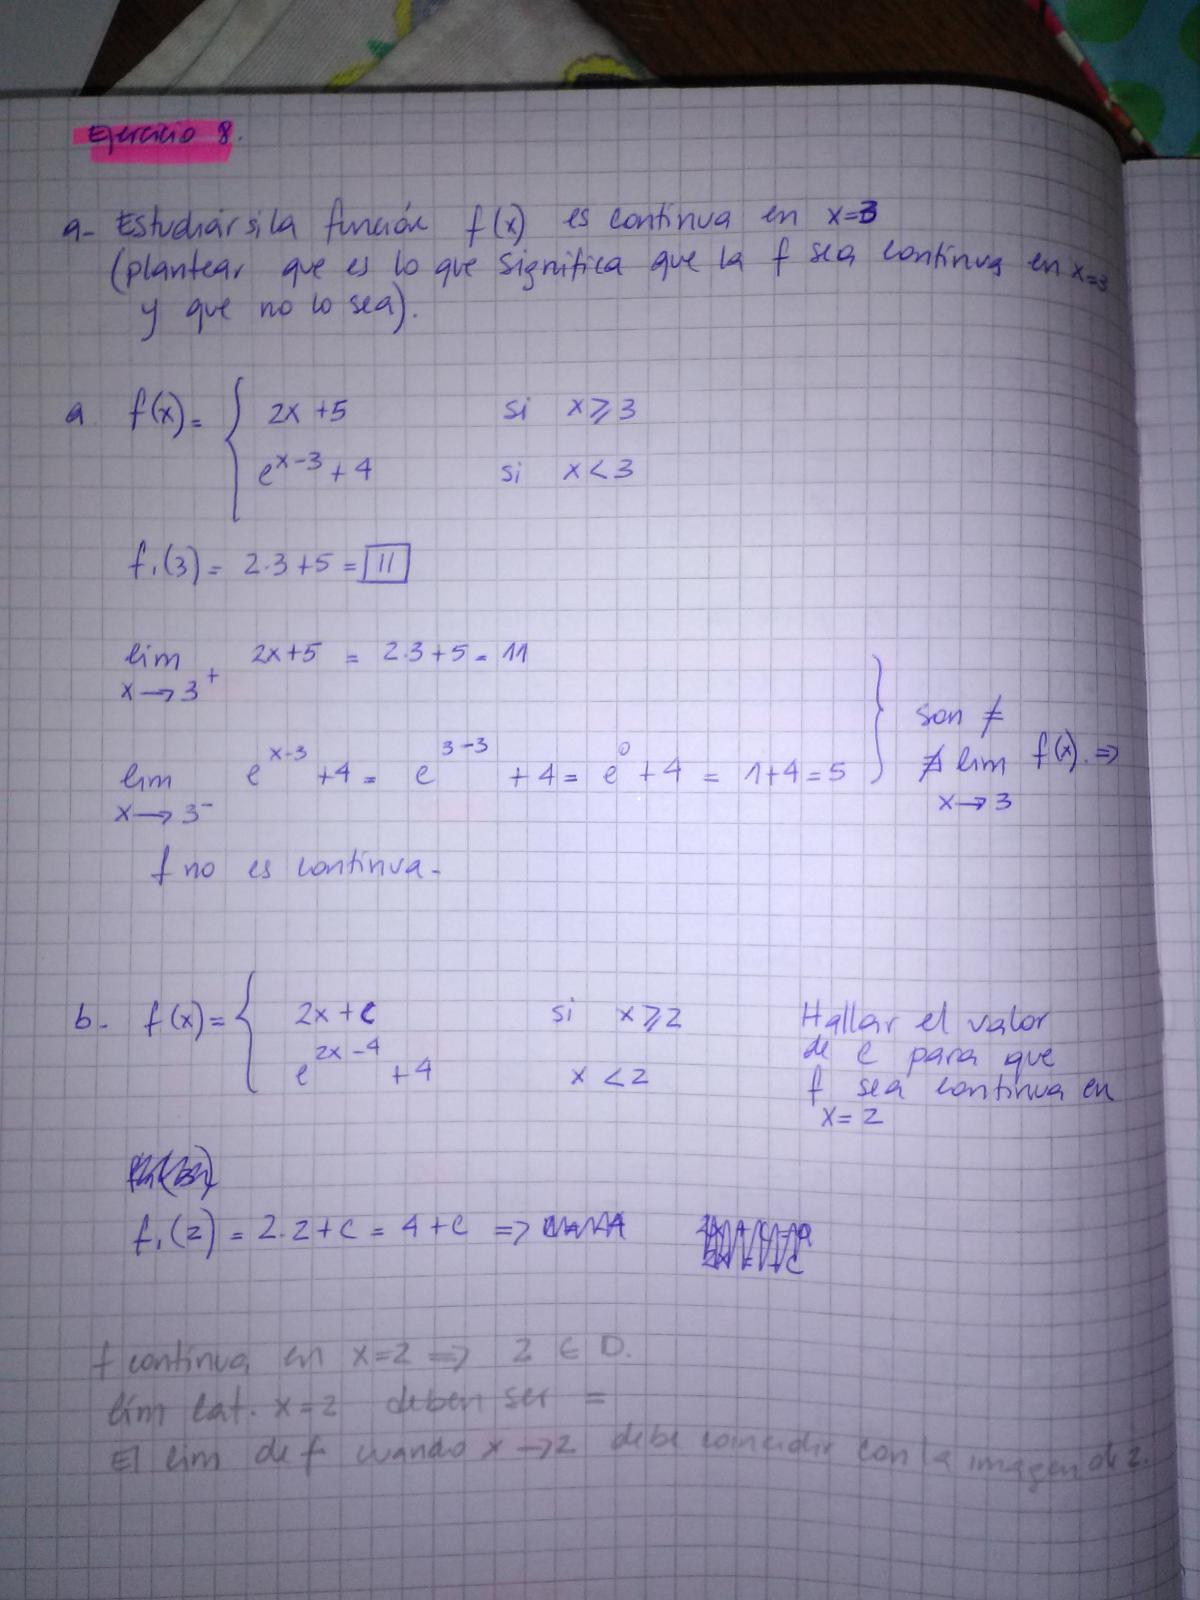 Ejercicio 8.
a- Estudiar si la función f(x) es contínua en x=3
(plantear que es lo que significa que la f sea contínua en x=3
y que no lo sea).
a f(x)= { 2x+5 si x⩾3
e^{x-3}+4 si x<3
f₁(3) = 2·3+5 = 11
lím x→3⁺ 2x+5 = 2·3+5 = 11
son ≠
lím x→3⁻ e^{x-3}+4 = e^{3-3}+4 = e^0+4 = 1+4=5 ∄ lím x→3 f(x). ⇒
f no es contínua-
b- f(x)= { 2x+c si x⩾2 Hallar el valor
e^{2x-4}+4 x<2 de c para que
f sea contínua en
x=2
f₁(2) = 2·2+c = 4+c ⇒
f contínua en x=2 ⇒ 2 ∈ D.
lím lat. x=2 deben ser =
El lím de f cuando x→2 debe coincidir con la imagen de 2.